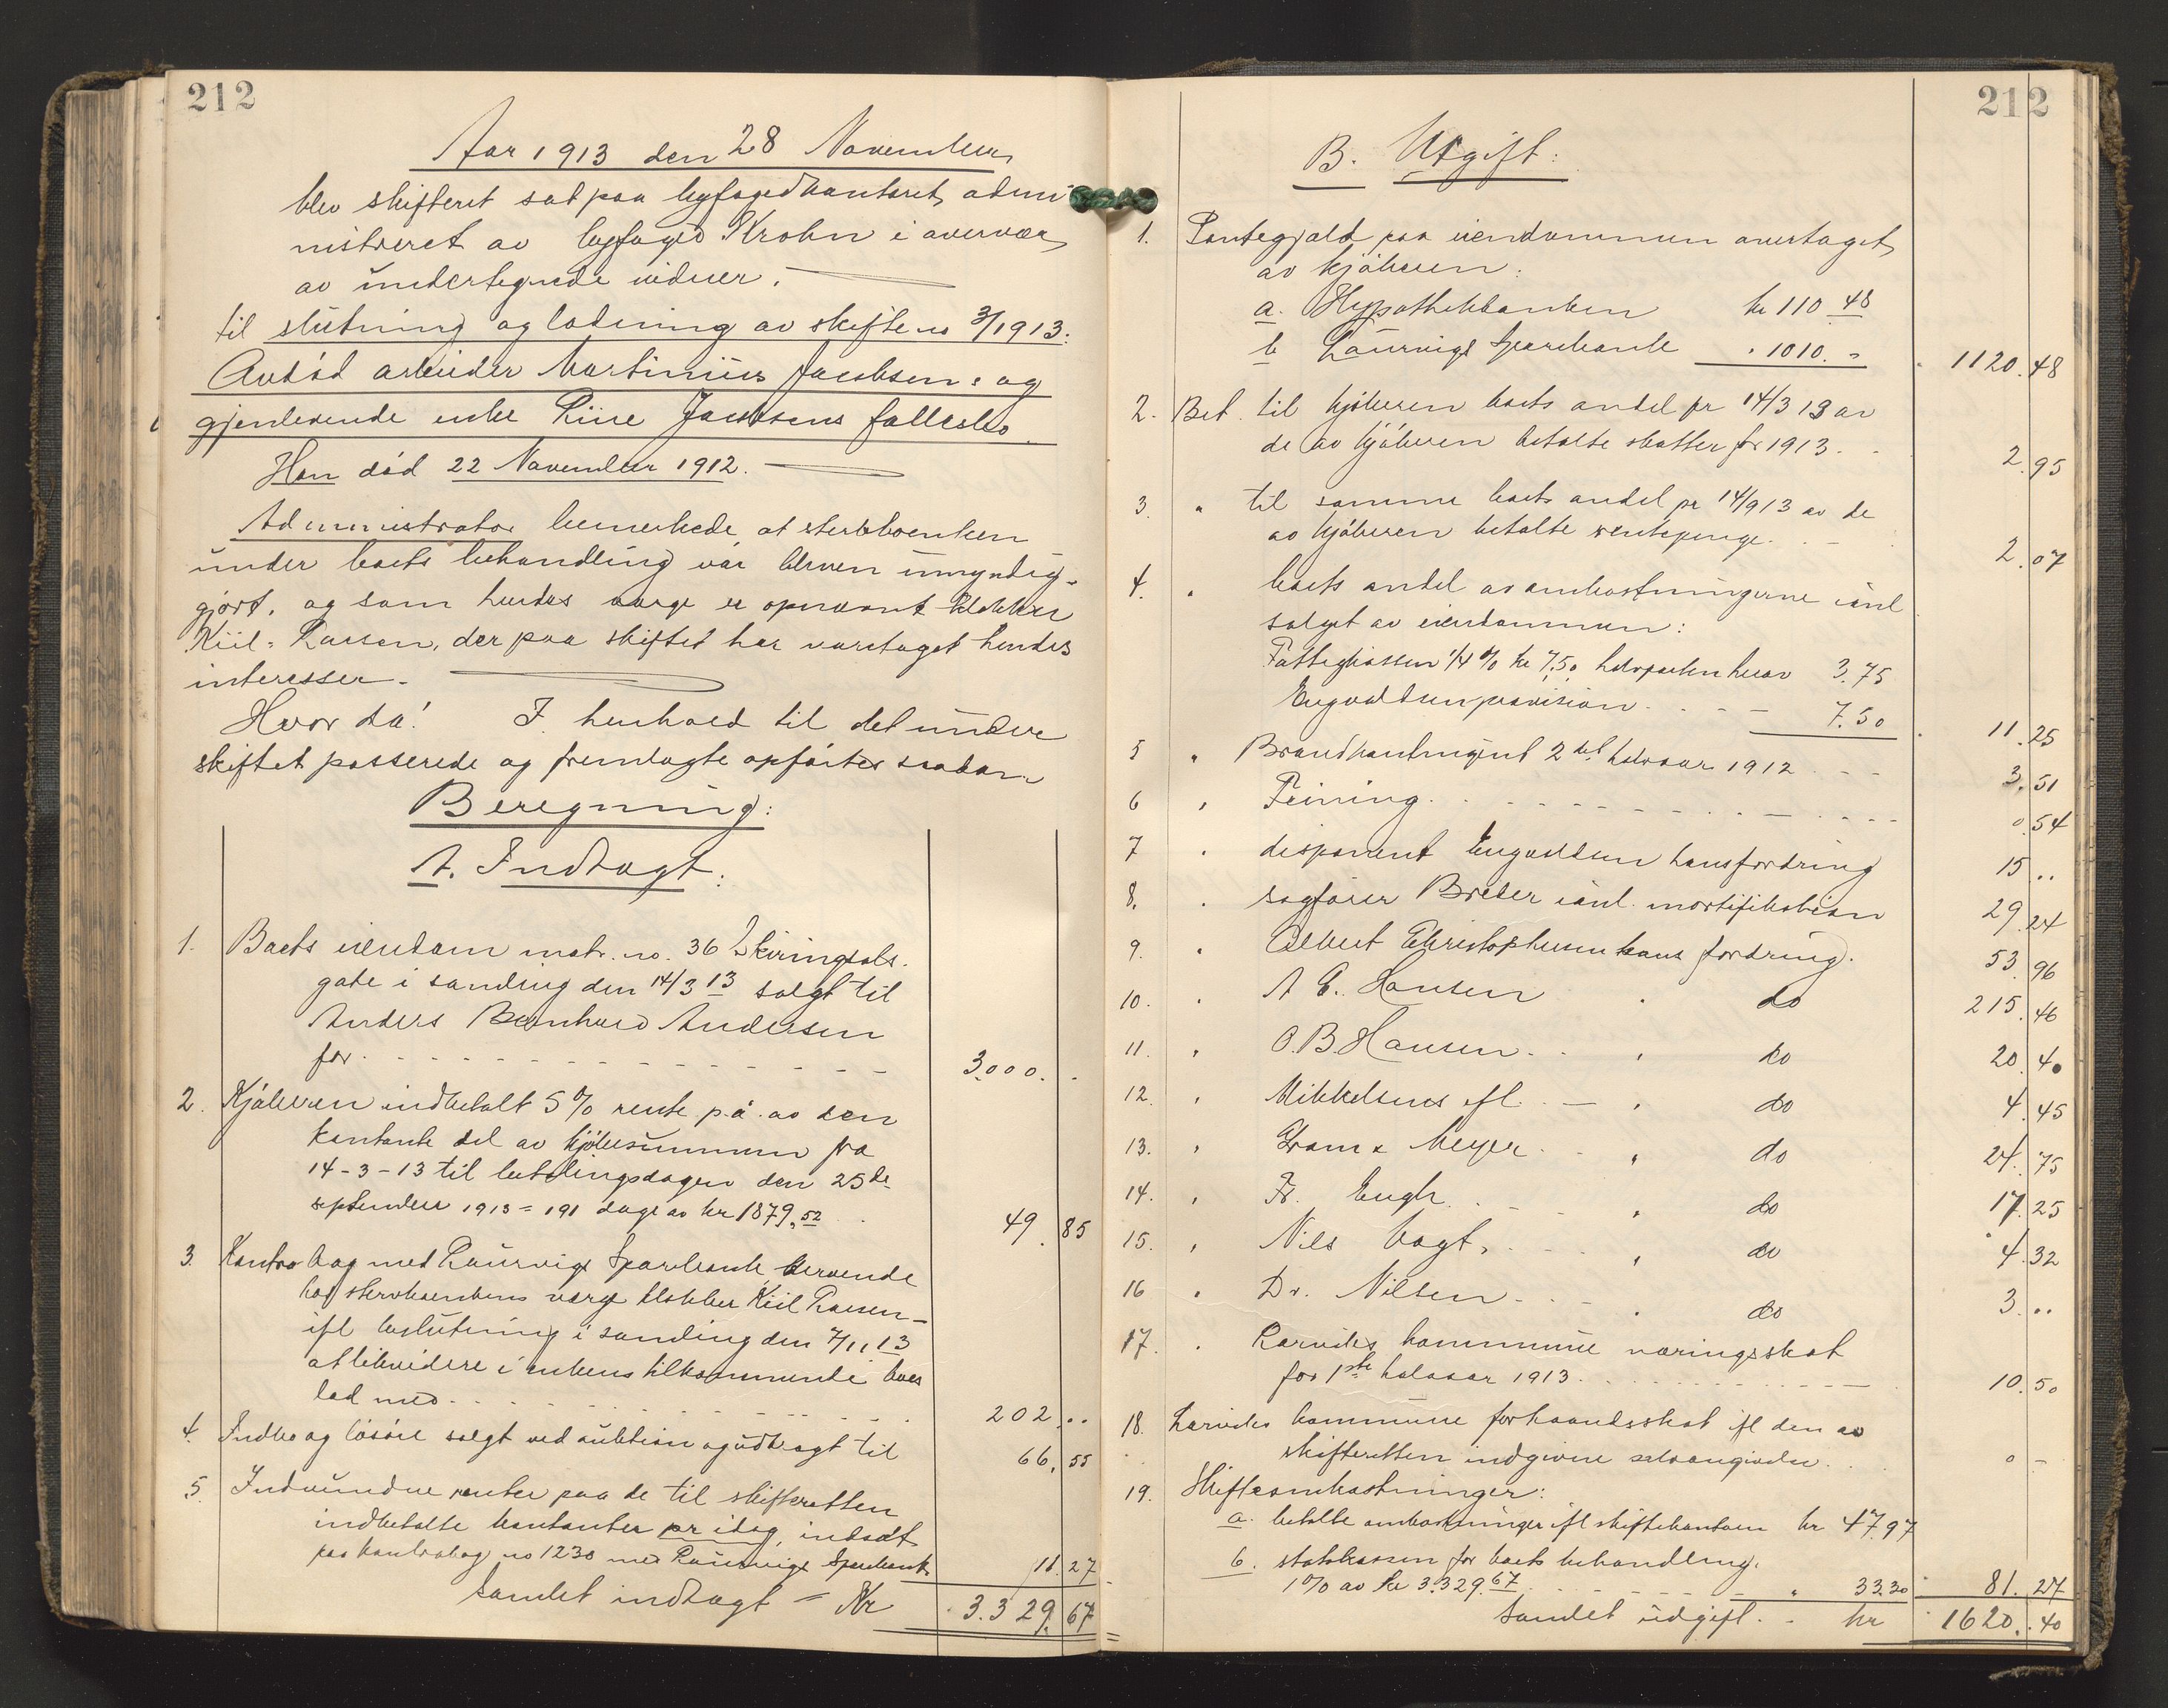 212
Aar 1913 den 28 November
blev skifteret sat paa byfogedkontoret, admi
nistreret av byfoged Krohn i overvær
av undertegnede vidner.
til slutning og lodning av skifte no 3/1913:
Avdöd arbeider Martinius Jacobsens og
gjenlevende enke Line Jacobsens fællesbo.
Han död 22 November 1912.
Administrator bemerkede, at sterbboenken
under boets behandling var bleven umyndig-
gjort, og som hendes værge er opnævnt klokker
Kiil-Larsen, der paa skiftet har varetaget hendes
interesser.
Hvor da! I henhold til det under
skiftet passerede og fremlagte opförtes saadan
Beregning:
A. Indtægt:
1. Boets eiendom matr. no. 36 Skiringsals-
gate i samling den 14/3 13 solgt til
Anders Bernhard Andersen
for 3.000. -
2. Kjöberen indbetalt 5% rente p.a. av den
kontante del av kjöbesummen fra
14-3-13 til betalingsdagen den 25de
september 1913 = 191 dage av kr 1879,52 49. 85
3. Kontrabog med Laurvigs Sparebank beroende
hos stervboenkens værge klokker Kiil Larsen -
ifl beslutning i samling den 7/11 13
at likvidere i enkens tilkommende boes
lod med 202 ..
4. Indbo og lösöre solgt ved auktion og udbragt til 66, 55
5. Indvundne renter paa de til skifteretten
indbetalte kontanter pr idag, indsat
paa kontrabog no 1230 med Laurvigs Sparebank 11. 27
Samlet indtægt = Kr 3.329. 67
212
B. Utgift:
1. Pantegjæld paa eiendommen overtaget
av kjöberen:
a. Hypothekbanken kr 110 48
b Laurvigs Sparebank " 1010. - 1120. 48
2. Bet. til kjöberen boets andel pr 14/3 13 av
de av kjöberen betalte skatter for 1913. 2. 95
3. " til samme boets andel pr 14/913 av de
av kjöberen betalte rentepenge. 2. 07
4. " boets andel av omkostningerne i anl
salget av eiendommen:
Fattigkassen 1/4 % kr 7.50 halvparten herav 3.75
Engvaldsen provision 7.50 11. 25
5 " Brandkontingent 2det halvaar 1912 3. 51
6 " Feining 0. 54
7 " disponent Engvaldsen hans fordring 15 ..
8. " sagförer Breder i anl. mortifikation 29. 24
9. " Albert Christophersen hans fordring. 53. 96
10. " A E. Hansen " do 215. 46
11. " O.B. Hansen " do 20. 40
12. " Mikkelsens efl. " do 4. 45
13. " Gram & Meyer " do 24. 75
14. " Fr. Engh " do 17. 25
15. " Nils Vogt, " do 4. 32
16 " Dr. Nilsen " do 3. ..
17. " Larviks kommune næringsskat
for 1ste halvaar 1913 10. 50
18. Larviks kommune forhaandsskat ifl den av
skifteretten indgivne selvangivelse 0 -
19. Skifteomkostninger:
a. betalte omkostninger ifl skiftekontoen kr 47.97
b. statskassen for boets behandling,
1% av kr 3.329.67 " 33.30 81. 27
Samlet udgift. kr 1620. 40